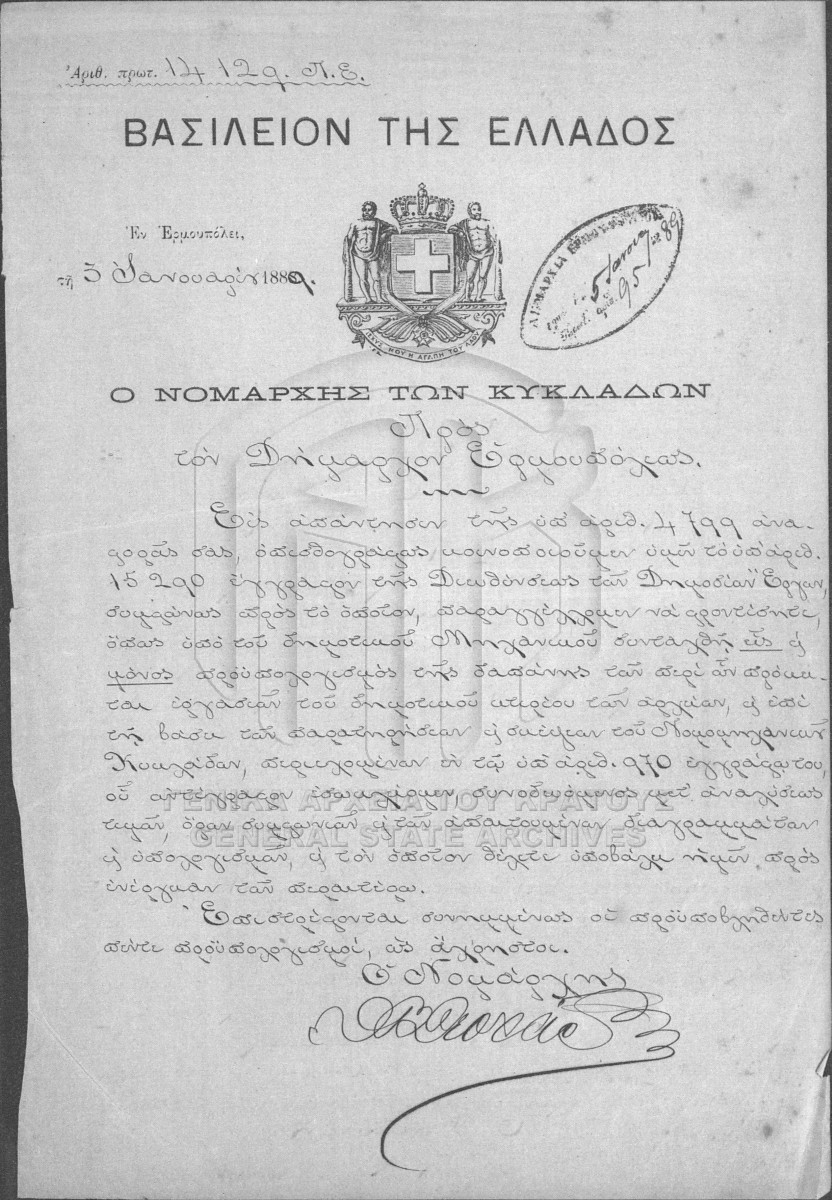 Ἀριθ. πρωτ. 14129. Π.Ε.
ΒΑΣΙΛΕΙΟΝ ΤΗΣ ΕΛΛΑΔΟΣ
Ἐν Ἑρμουπόλει,
τῇ 5 Ἰανουαρίου 1889.
ΔΗΜΑΡΧΙΑ ΕΡΜΟΥΠΟΛΕΩΣ
5 Ἰανου 89
95
ΙΣΧΥΣ ΜΟΥ Η ΑΓΑΠΗ ΤΟΥ ΛΑΟΥ
Ο ΝΟΜΑΡΧΗΣ ΤΩΝ ΚΥΚΛΑΔΩΝ
Πρὸς
τὸν Δήμαρχον Ἑρμουπόλεως.
Εἰς ἀπάντησιν τῆς ὑπ' ἀριθ. 4799 ἀνα-
φορᾶς σας, ὀπισθογράφως κοινοποιοῦμεν ὑμῖν τὸ ὑπ' ἀριθ.
15290 ἔγγραφον τῆς Διευθύνσεως τῶν Δημοσίων Ἔργων,
συμφώνως πρὸς τὸ ὁποῖον, παραγγέλλομεν νὰ φροντίσητε,
ὅπως ὑπὸ τοῦ δημοτικοῦ Μηχανικοῦ συνταχθῇ εἷς ἢ
μόνος προϋπολογισμὸς τῆς δαπάνης τῶν περὶ ὧν πρόκει-
ται ἐργασιῶν τοῦ δημοτικοῦ κτιρίου τῶν ἀρχῶν, ἢ ἐπὶ
τῇ βάσει τῶν παρατηρήσεων ἢ σκέψεων τοῦ Νομομηχανικοῦ
Κυκλάδων, περιεχομένων ἐν τῷ ὑπ' ἀριθ. 970 ἐγγράφῳ του,
οὗ ἀντίγραφον ἐσωκλείομεν, συνοδευόμενος μετ' ἀναλύσεως
τιμῶν, ὅρων συμφωνιῶν ἢ τῶν ἀπαιτουμένων διαγραμμάτων
ἢ ὑπολογισμῶν, ἢ τὸν ὁποῖον θέλετε ὑποβάλει ἡμῖν πρὸς
ἐνέργειαν τῶν περαιτέρω.
Ἐπιστρέφονται συνημμένως οἱ προϋποβληθέντες
πέντε προϋπολογισμοί, ὡς ἄχρηστοι.
Ὁ Νομάρχης
ΓΕΝΙΚΑ ΑΡΧΕΙΑ ΤΟΥ ΚΡΑΤΟΥΣ
GENERAL STATE ARCHIVES